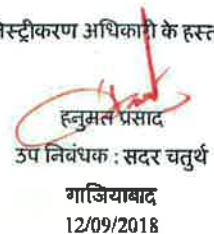 रजिस्ट्रीकरण अधिकारी के हस्त
हनुमंत प्रसाद
उप निबंधक : सदर चतुर्थ
गाजियाबाद
12/09/2018